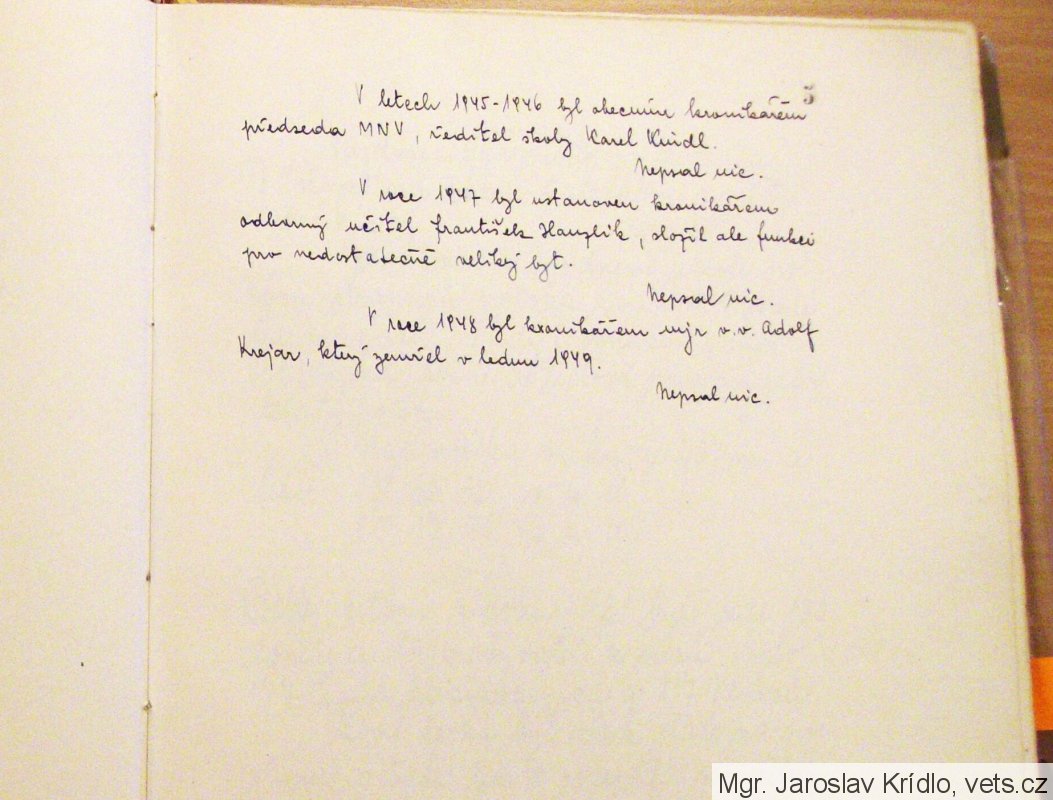 5
V letech 1945-1946 byl obecním kronikářem
předseda MNV, ředitel školy Karel Kindl.
Nepsal nic.
V roce 1947 byl ustanoven kronikářem
odborný učitel František Hanzlik, složil ale funkci
pro nedostatečně veliký byt.
Nepsal nic.
V roce 1948 byl kronikářem mjr v.v. Adolf
Krejar, který zemřel v lednu 1949.
Nepsal nic.
Mgr. Jaroslav Krídlo, vets.cz